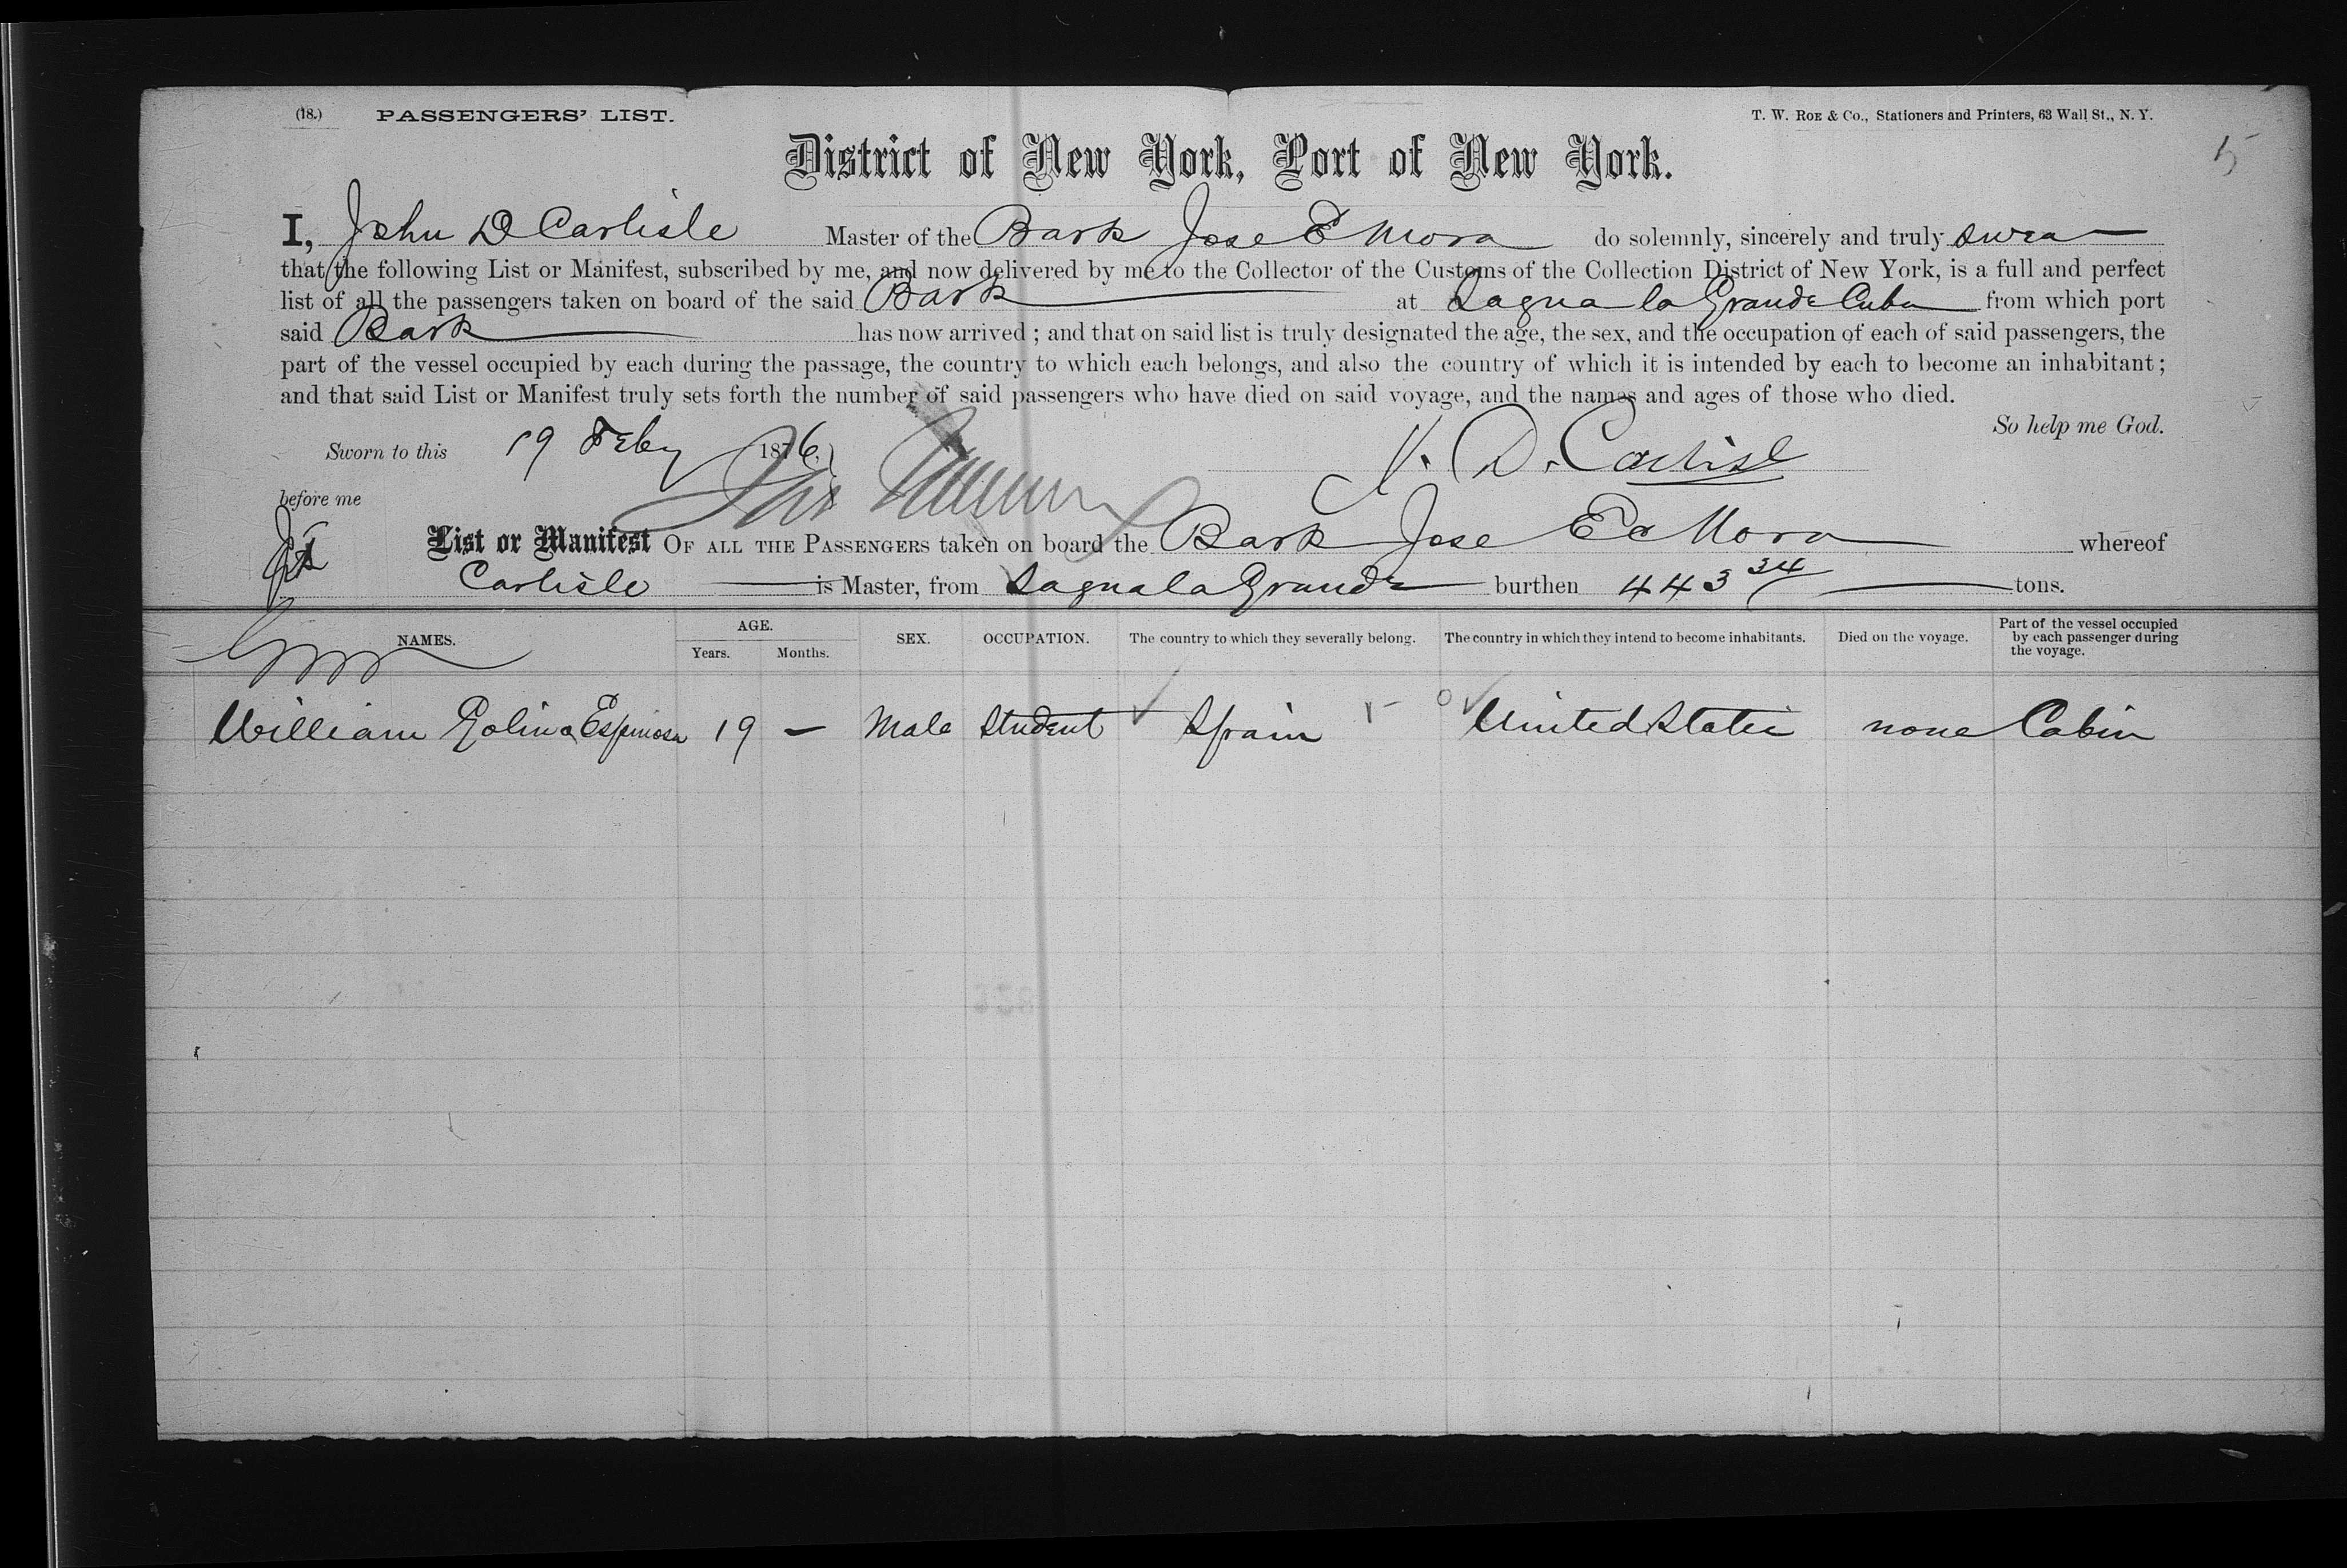 (18.) PASSENGERS' LIST. T. W. Roe & Co., Stationers and Printers, 63 Wall St., N. Y.
5
District of New York, Port of New York.
I, John D Carlisle Master of the Bark Jose E Mora do solemnly, sincerely and truly swear
that the following List or Manifest, subscribed by me, and now delivered by me to the Collector of the Customs of the Collection District of New York, is a full and perfect
list of all the passengers taken on board of the said Bark at Sagua la Grande Cuba from which port
said Bark has now arrived ; and that on said list is truly designated the age, the sex, and the occupation of each of said passengers, the
part of the vessel occupied by each during the passage, the country to which each belongs, and also the country of which it is intended by each to become an inhabitant ;
and that said List or Manifest truly sets forth the number of said passengers who have died on said voyage, and the names and ages of those who died.
So help me God.
Sworn to this 19 Feby 1876. J. D. Carlisle
before me
List or Manifest OF ALL THE PASSENGERS taken on board the Bark Jose E Mora whereof
Carlisle is Master, from Sagua la Grande burthen 443 34 tons.
NAMES. AGE. Years. Months. SEX. OCCUPATION. The country to which they severally belong. The country in which they intend to become inhabitants. Died on the voyage. Part of the vessel occupied by each passenger during the voyage.
William Espinosa 19 – Male Student Spain United States none Cabin